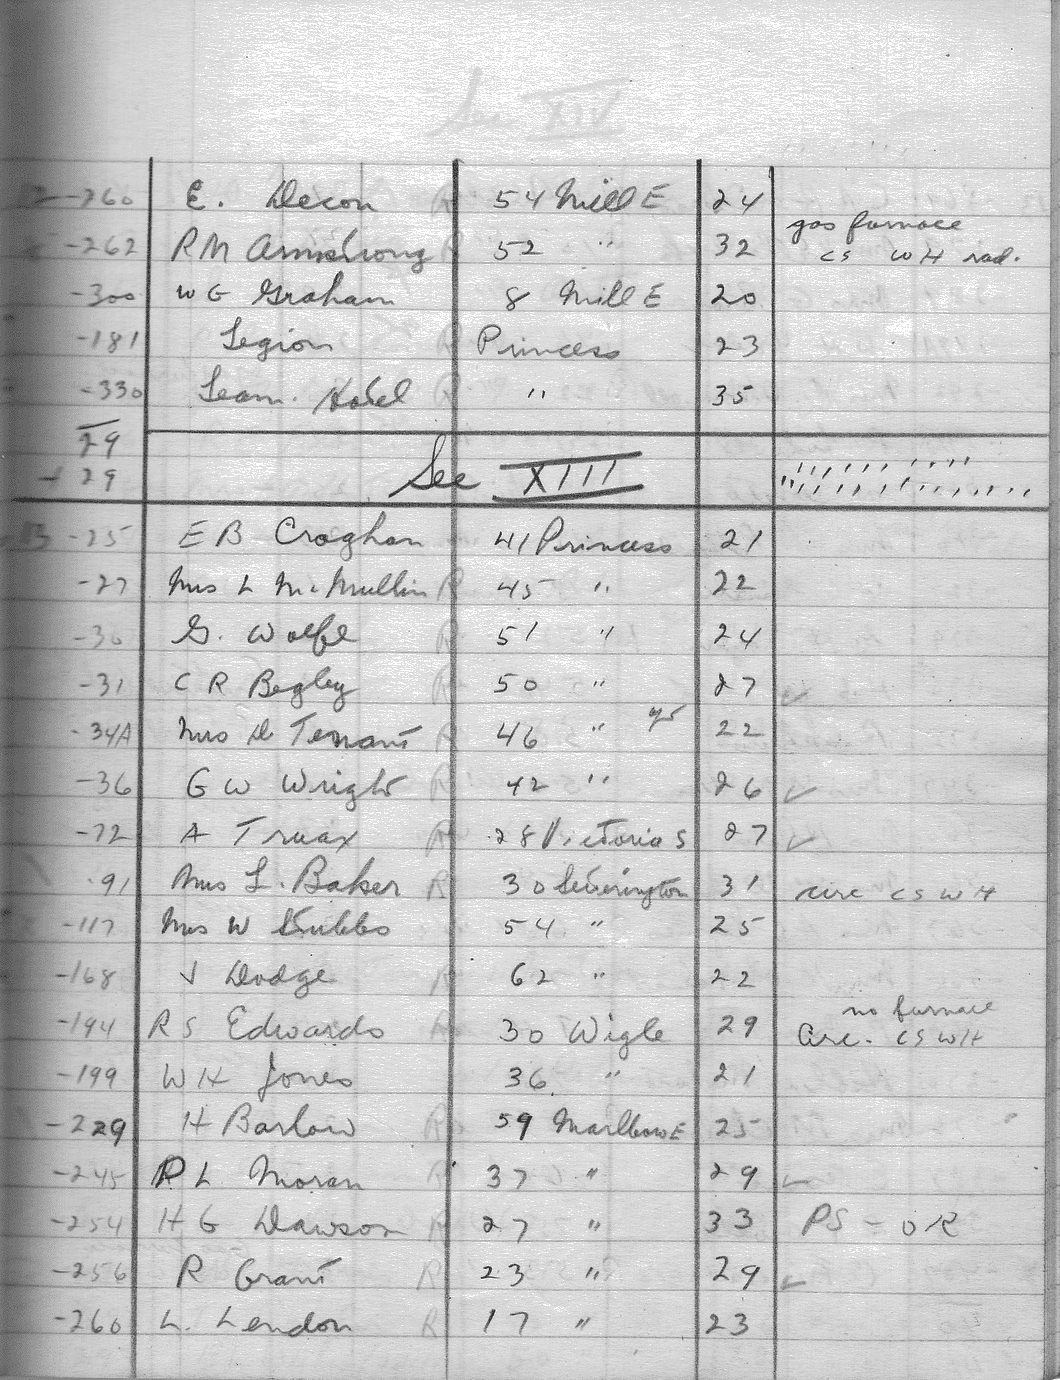 -260 E. Dixon R 54 Mill E 24
gas furnace
-262 R M Armstrong 52 " 32 cs W H rad.
-300 W G Graham 8 Mill E 20
-181 Legion R Princess 23
-330 Leam. Hotel R " 35
29
29 Sec XIII
13 -25 E B Croghan 41 Princess 21
-27 Mrs L McMullin R 45 " 22
-30 G. Wolfe R 51 " 24
-31 C R Begley R 50 " 27 ✓
-34A Mrs D Tennant R 46 " 22
-36 G W Wright R 42 " 26 ✓
-72 A Truax R 28 Victoria S 27 ✓
-91 Mrs L. Baker R 30 Setterington 31 circ CS W H
-117 Mrs W Stubbs 54 " 25
-168 J Dodge R 62 " 22
no furnace
-194 R S Edwards R 30 Wigle 29 Circ. CS WH
-199 W H Jones 36 " 21
-229 H Barlow R 59 Marlboro E 25
-245 R L Moran R 37 " 29 ✓
-254 H G Dawson R 27 " 33 PS - OK
-256 R Grant R 23 " 29 ✓
-260 L. Lendon R 17 " 23